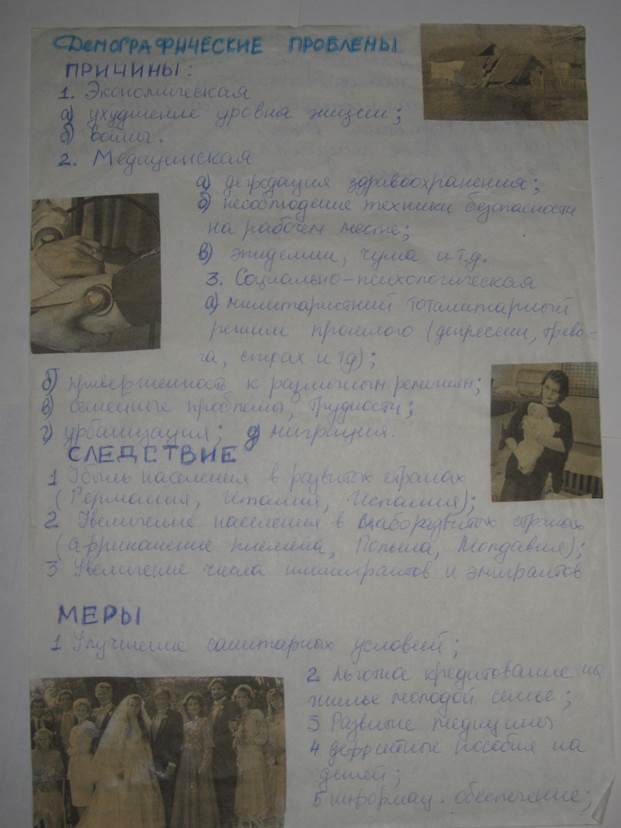 ДЕМОГРАФИЧЕСКИЕ ПРОБЛЕМЫ
ПРИЧИНЫ:
1. Экономическая
а) ухудшение уровня жизни;
б) войны.
2. Медицинская
а) деградация здравоохранения;
б) несоблюдение техники безопасности
на рабочем месте;
в) эпидемии, чума и т.д.
3. Социально-психологическая
а) милитаристский тоталитарный
режим прошлого (депрессии, трево-
га, страх и тд);
б) приверженность к различным религиям;
в) семейные проблемы, трудности;
г) урбанизация; д) миграция.
СЛЕДСТВИЕ
1 Убыль населения в развитых странах
(Германия, Италия, Испания);
2 Увеличение населения в слаборазвитых странах
(африканские племена, Польша, Молдавия);
3 Увеличение числа иммигрантов и эмигрантов
МЕРЫ
1 Улучшение санитарных условий;
2 Льгота кредитование на
жилье молодой семье;
3 Развитие медицины
4 декретные пособия на
детей;
5 информац. обеспечение;